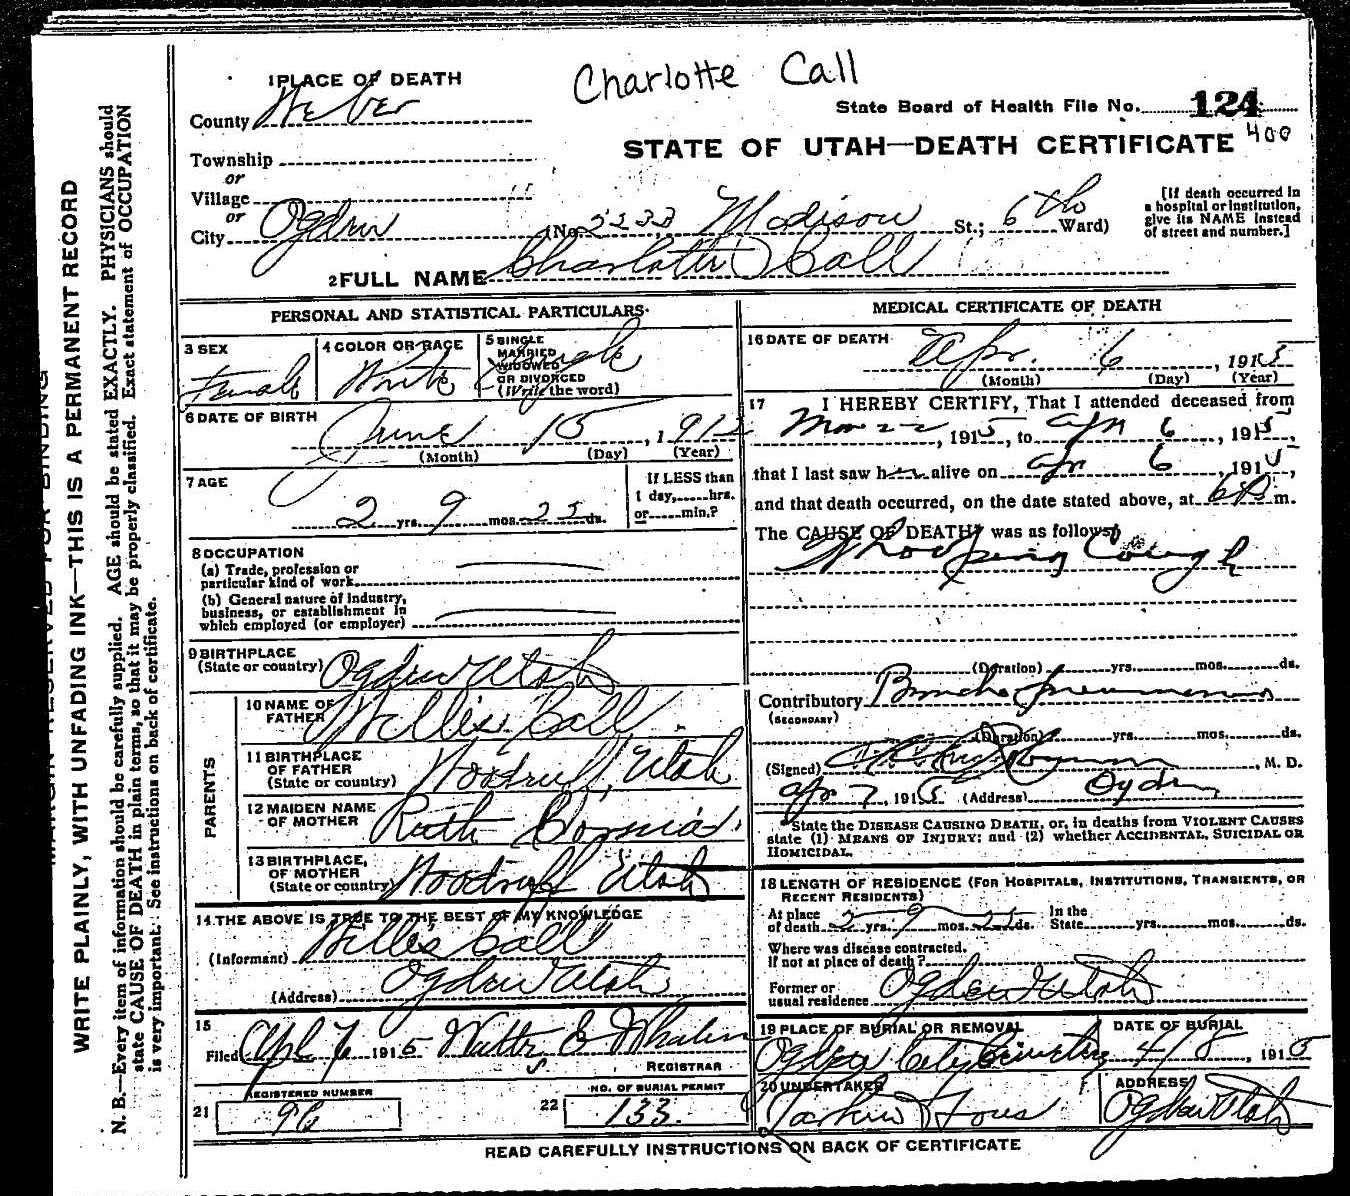 Charlotte Call
1 PLACE OF DEATH
County Weber
State Board of Health File No. 124
400
STATE OF UTAH—DEATH CERTIFICATE
Township
or
Village
or
City Ogden (No. 2233 Madison St.; 6th Ward)
[If death occurred in
a hospital or institution,
give its NAME instead
of street and number.]
2 FULL NAME Charlotte Call
PERSONAL AND STATISTICAL PARTICULARS
3 SEX
Female
4 COLOR OR RACE
White
5 SINGLE
MARRIED
WIDOWED
OR DIVORCED
(Write the word)
Single
6 DATE OF BIRTH
June 15, 1912
(Month) (Day) (Year)
7 AGE
2 yrs. 9 mos. 25 ds.
If LESS than
1 day,......hrs.
or......min.?
8 OCCUPATION
(a) Trade, profession or
particular kind of work
(b) General nature of industry,
business, or establishment in
which employed (or employer)
9 BIRTHPLACE
(State or country) Ogden Utah
PARENTS
10 NAME OF
FATHER Willis Call
11 BIRTHPLACE
OF FATHER
(State or country) Woodruff, Utah
12 MAIDEN NAME
OF MOTHER Ruth
13 BIRTHPLACE,
OF MOTHER
(State or country) Woodruff Utah
14 THE ABOVE IS TRUE TO THE BEST OF MY KNOWLEDGE
(Informant) Willis Call
(Address) Ogden Utah
15
Filed Apl 7 1915 Walter E Whalen
REGISTRAR
REGISTERED NUMBER
21 96
NO. OF BURIAL PERMIT
22 133
MEDICAL CERTIFICATE OF DEATH
16 DATE OF DEATH
Apr. 6, 1915
(Month) (Day) (Year)
17 I HEREBY CERTIFY, That I attended deceased from
Mar 22, 1915, to Apr 6, 1915,
that I last saw her alive on Apr 6, 1915,
and that death occurred, on the date stated above, at 6 P m.
The CAUSE OF DEATH was as follows:
Whooping Cough
(Duration) yrs. mos. ds.
Contributory Broncho pneumonia
(SECONDARY)
(Duration) yrs. mos. ds.
(Signed) , M. D.
Apr 7, 1915 (Address) Ogden
State the DISEASE CAUSING DEATH, or, in deaths from VIOLENT CAUSES
state (1) MEANS OF INJURY; and (2) whether ACCIDENTAL, SUICIDAL OR
HOMICIDAL.
18 LENGTH OF RESIDENCE (FOR HOSPITALS, INSTITUTIONS, TRANSIENTS, OR
RECENT RESIDENTS)
At place
of death 2 yrs. 9 mos. 25 ds. In the
State yrs. mos. ds.
Where was disease contracted,
If not at place of death?
Former or
usual residence Ogden Utah
19 PLACE OF BURIAL OR REMOVAL
Ogden City Cemetery
DATE OF BURIAL
4/8, 1915
20 UNDERTAKER
Larkin & Sons
ADDRESS
Ogden Utah
READ CAREFULLY INSTRUCTIONS ON BACK OF CERTIFICATE
MARGIN RESERVED FOR BINDING
WRITE PLAINLY, WITH UNFADING INK—THIS IS A PERMANENT RECORD
N. B.—Every item of information should be carefully supplied. AGE should be stated EXACTLY. PHYSICIANS should
state CAUSE OF DEATH in plain terms, so that it may be properly classified. Exact statement of OCCUPATION
is very important. See instructions on back of certificate.